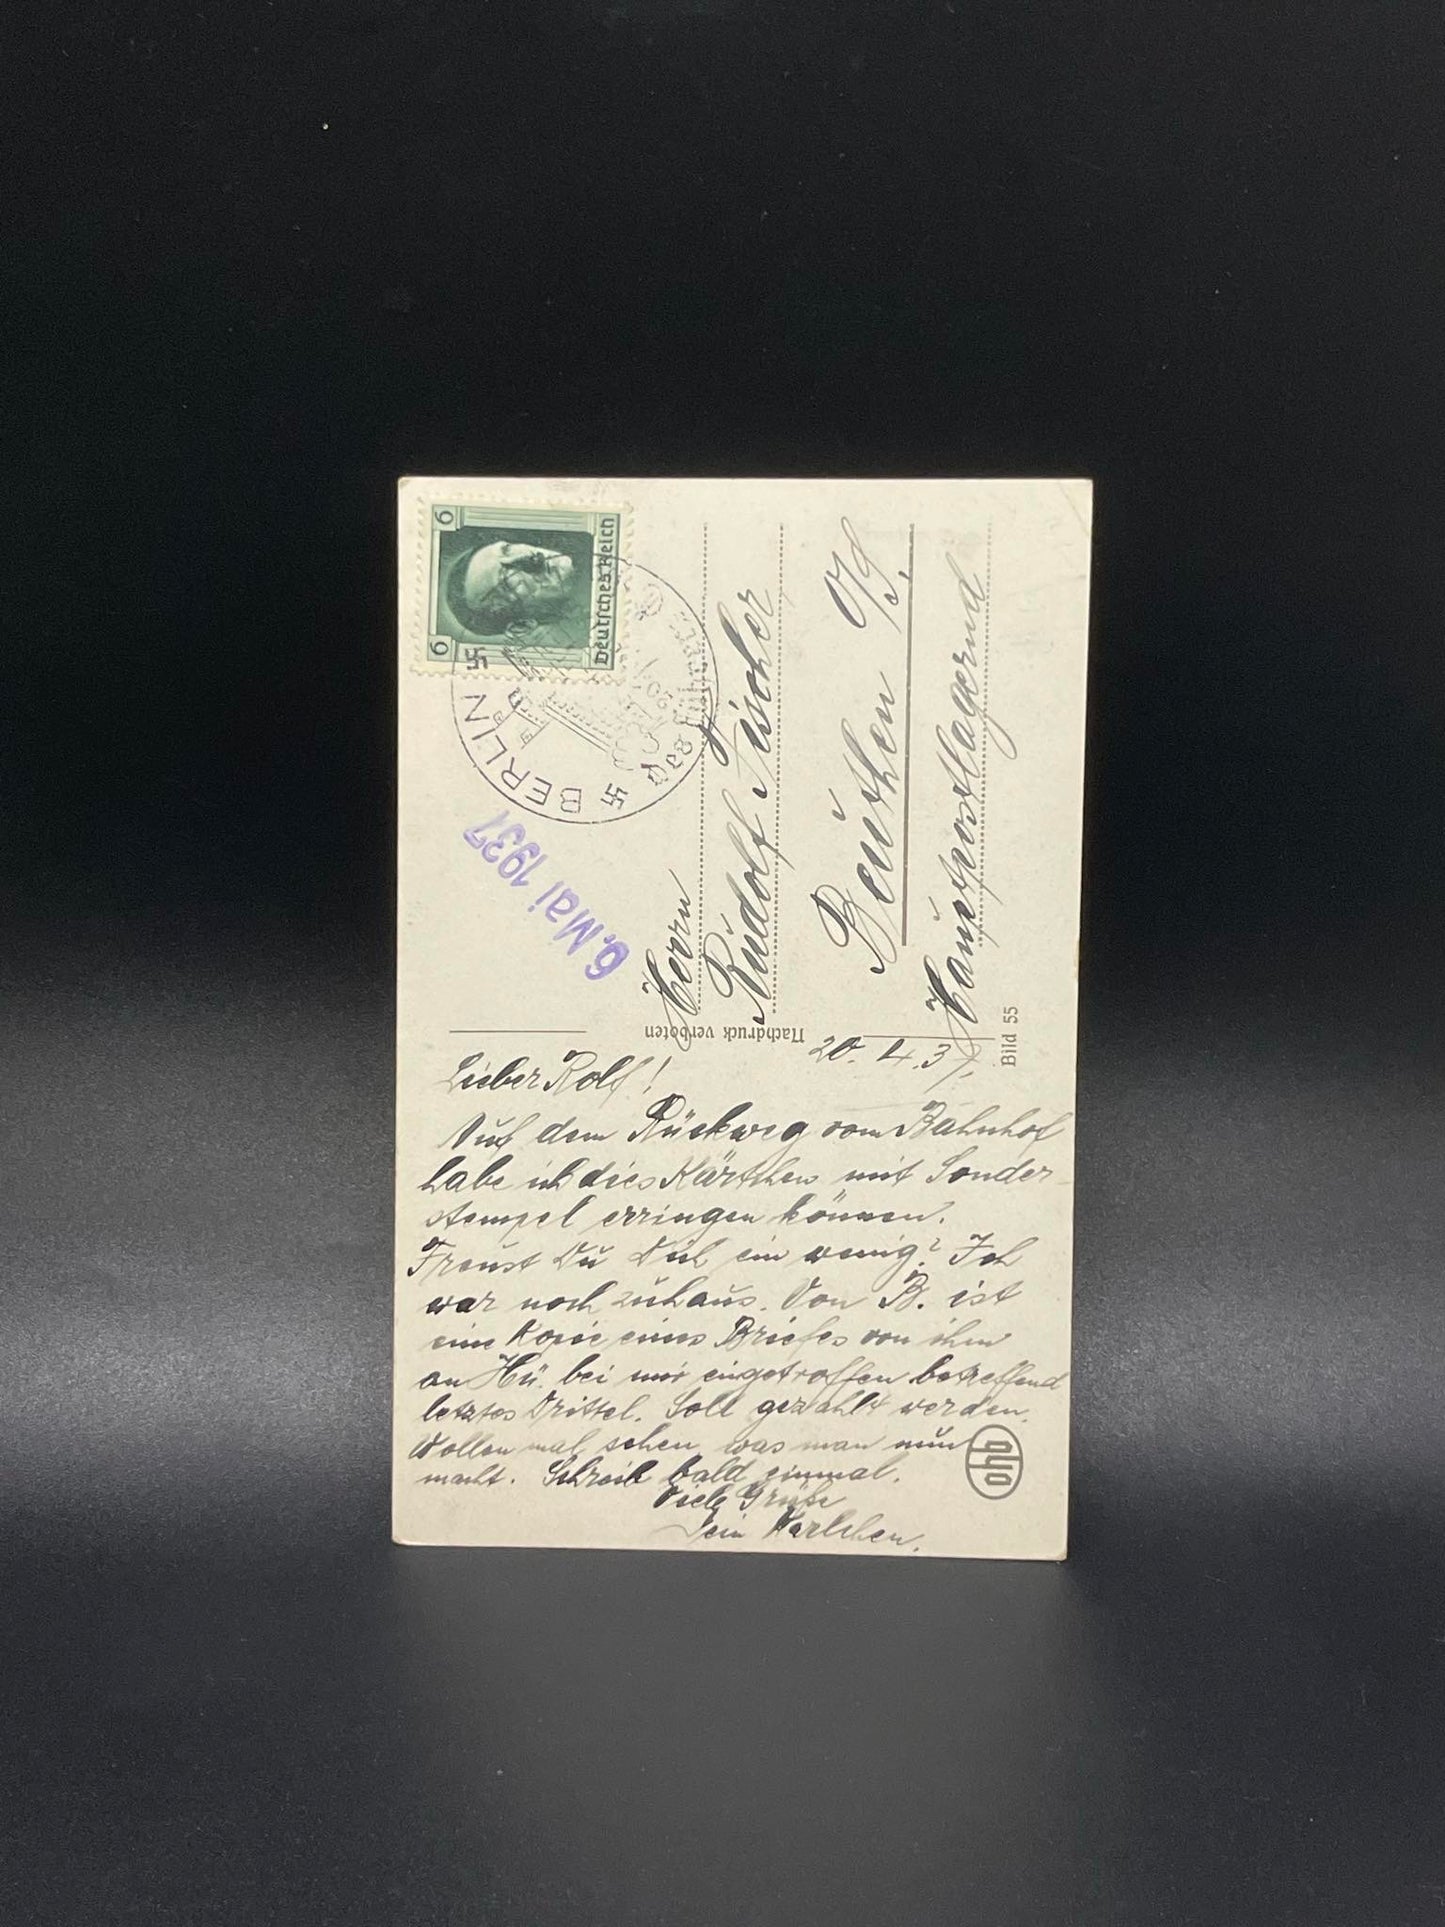 6 6
Deutsches Reich
BERLIN
des Führers
6. Mai 1937
Herrn
Rudolf Tischler
Beuthen O/S.
Hauptpostlagernd
Nachdruck verboten
Bild 55
20.4.37.
Lieber Rolf!
Auf dem Rückweg vom Bahnhof
habe ich dies Kärtchen mit Sonder-
stempel erringen können.
Freust Du Dich ein wenig? Ich
war noch zuhaus. Von B. ist
eine Kopie eines Briefes von ihm
an Hü. bei mir eingetroffen betreffend
letztes Drittel. Soll gezahlt werden.
Wollen mal sehen was man nun
macht. Schreib bald einmal.
Viele Grüße
Dein Karlchen.
ohb